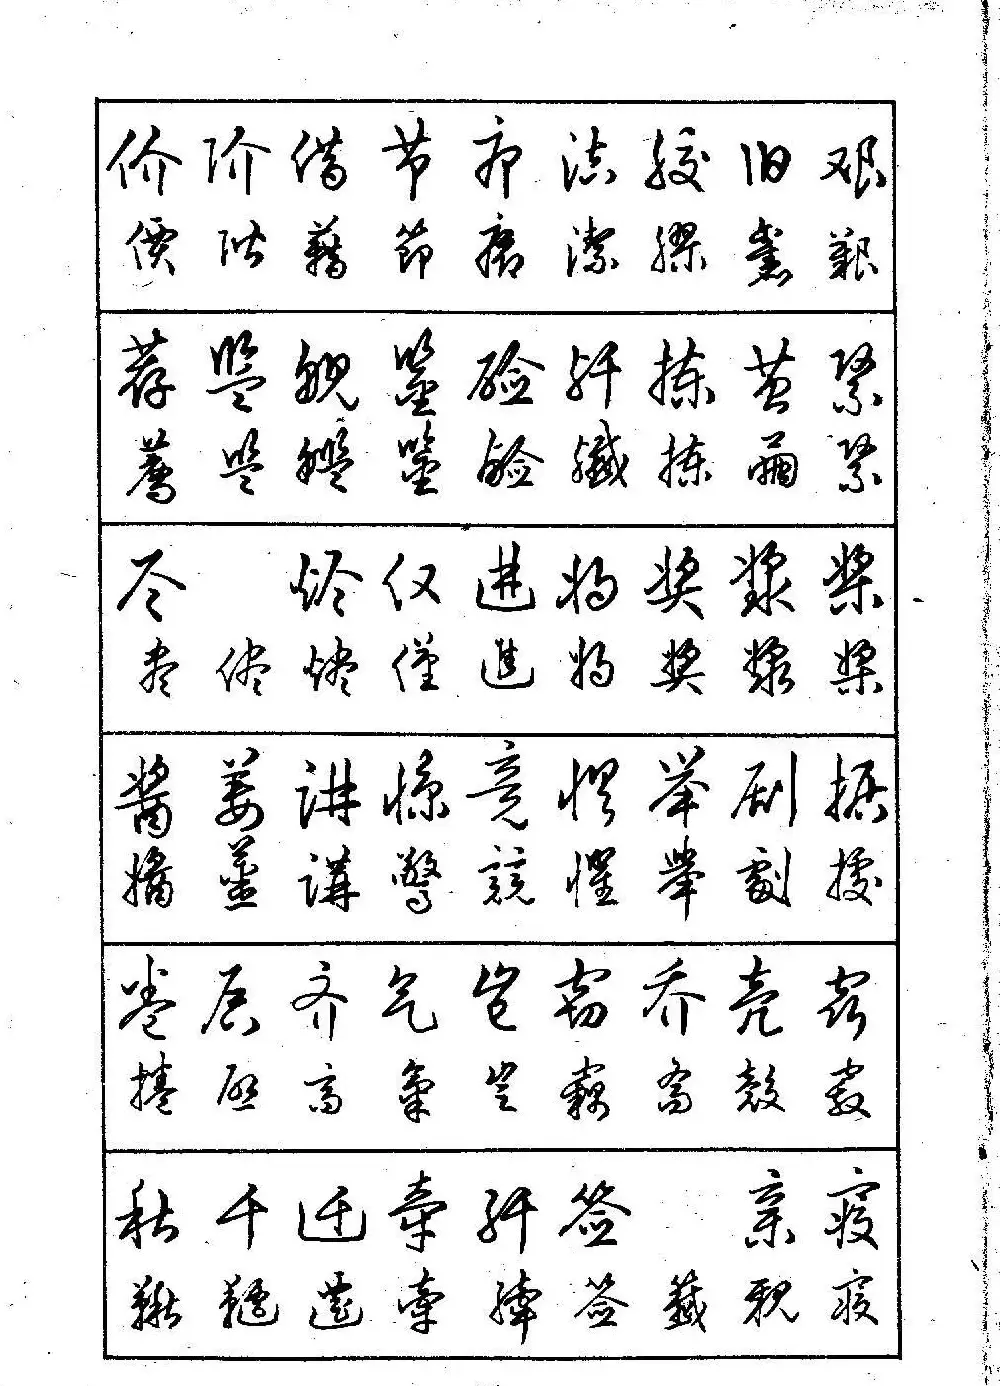 价 阶 借 节 疖 洁 胶 旧 艰
價 階 藉 節 癤 潔 膠 舊 艱
荐 监 舰 鉴 硷 歼 拣 茧 紧
薦 監 艦 鑒 鹼 殲 揀 繭 緊
尽 烬 仅 进 将 奖 浆 桨
盡 儘 燼 僅 進 將 獎 漿 槳
酱 姜 讲 惊 竞 惧 举 剧 据
醬 薑 講 驚 競 懼 舉 劇 據
卷 启 齐 气 岂 窃 乔 壳 窍
捲 啓 齊 氣 豈 竊 喬 殼 竅
秋 千 迁 牵 纤 签 亲 寝
鞦 韆 遷 牽 縴 簽 籤 親 寢